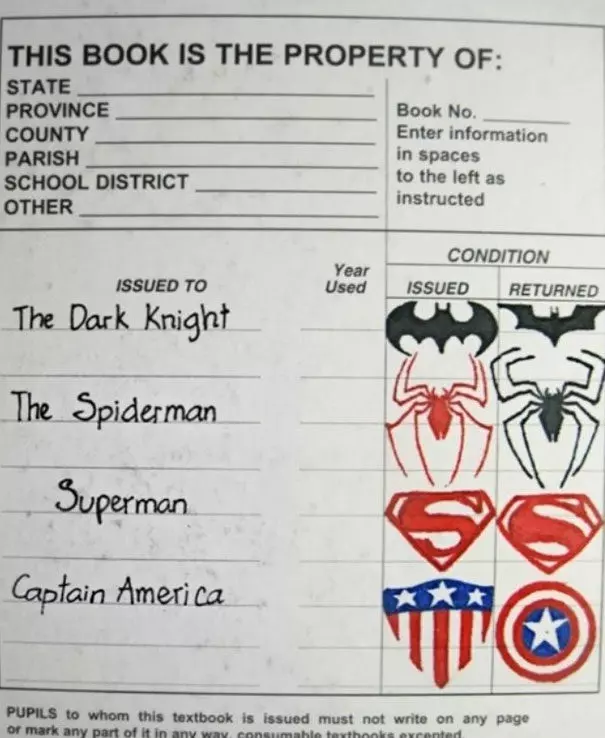 THIS BOOK IS THE PROPERTY OF:
STATE
PROVINCE
COUNTY
PARISH
SCHOOL DISTRICT
OTHER
Book No.
Enter information
in spaces
to the left as
instructed
ISSUED TO
Year
Used
CONDITION
ISSUED
RETURNED
The Dark Knight
The Spiderman
Superman
Captain America
PUPILS to whom this textbook is issued must not write on any page
or mark any part of it in any way, consumable textbooks excepted.